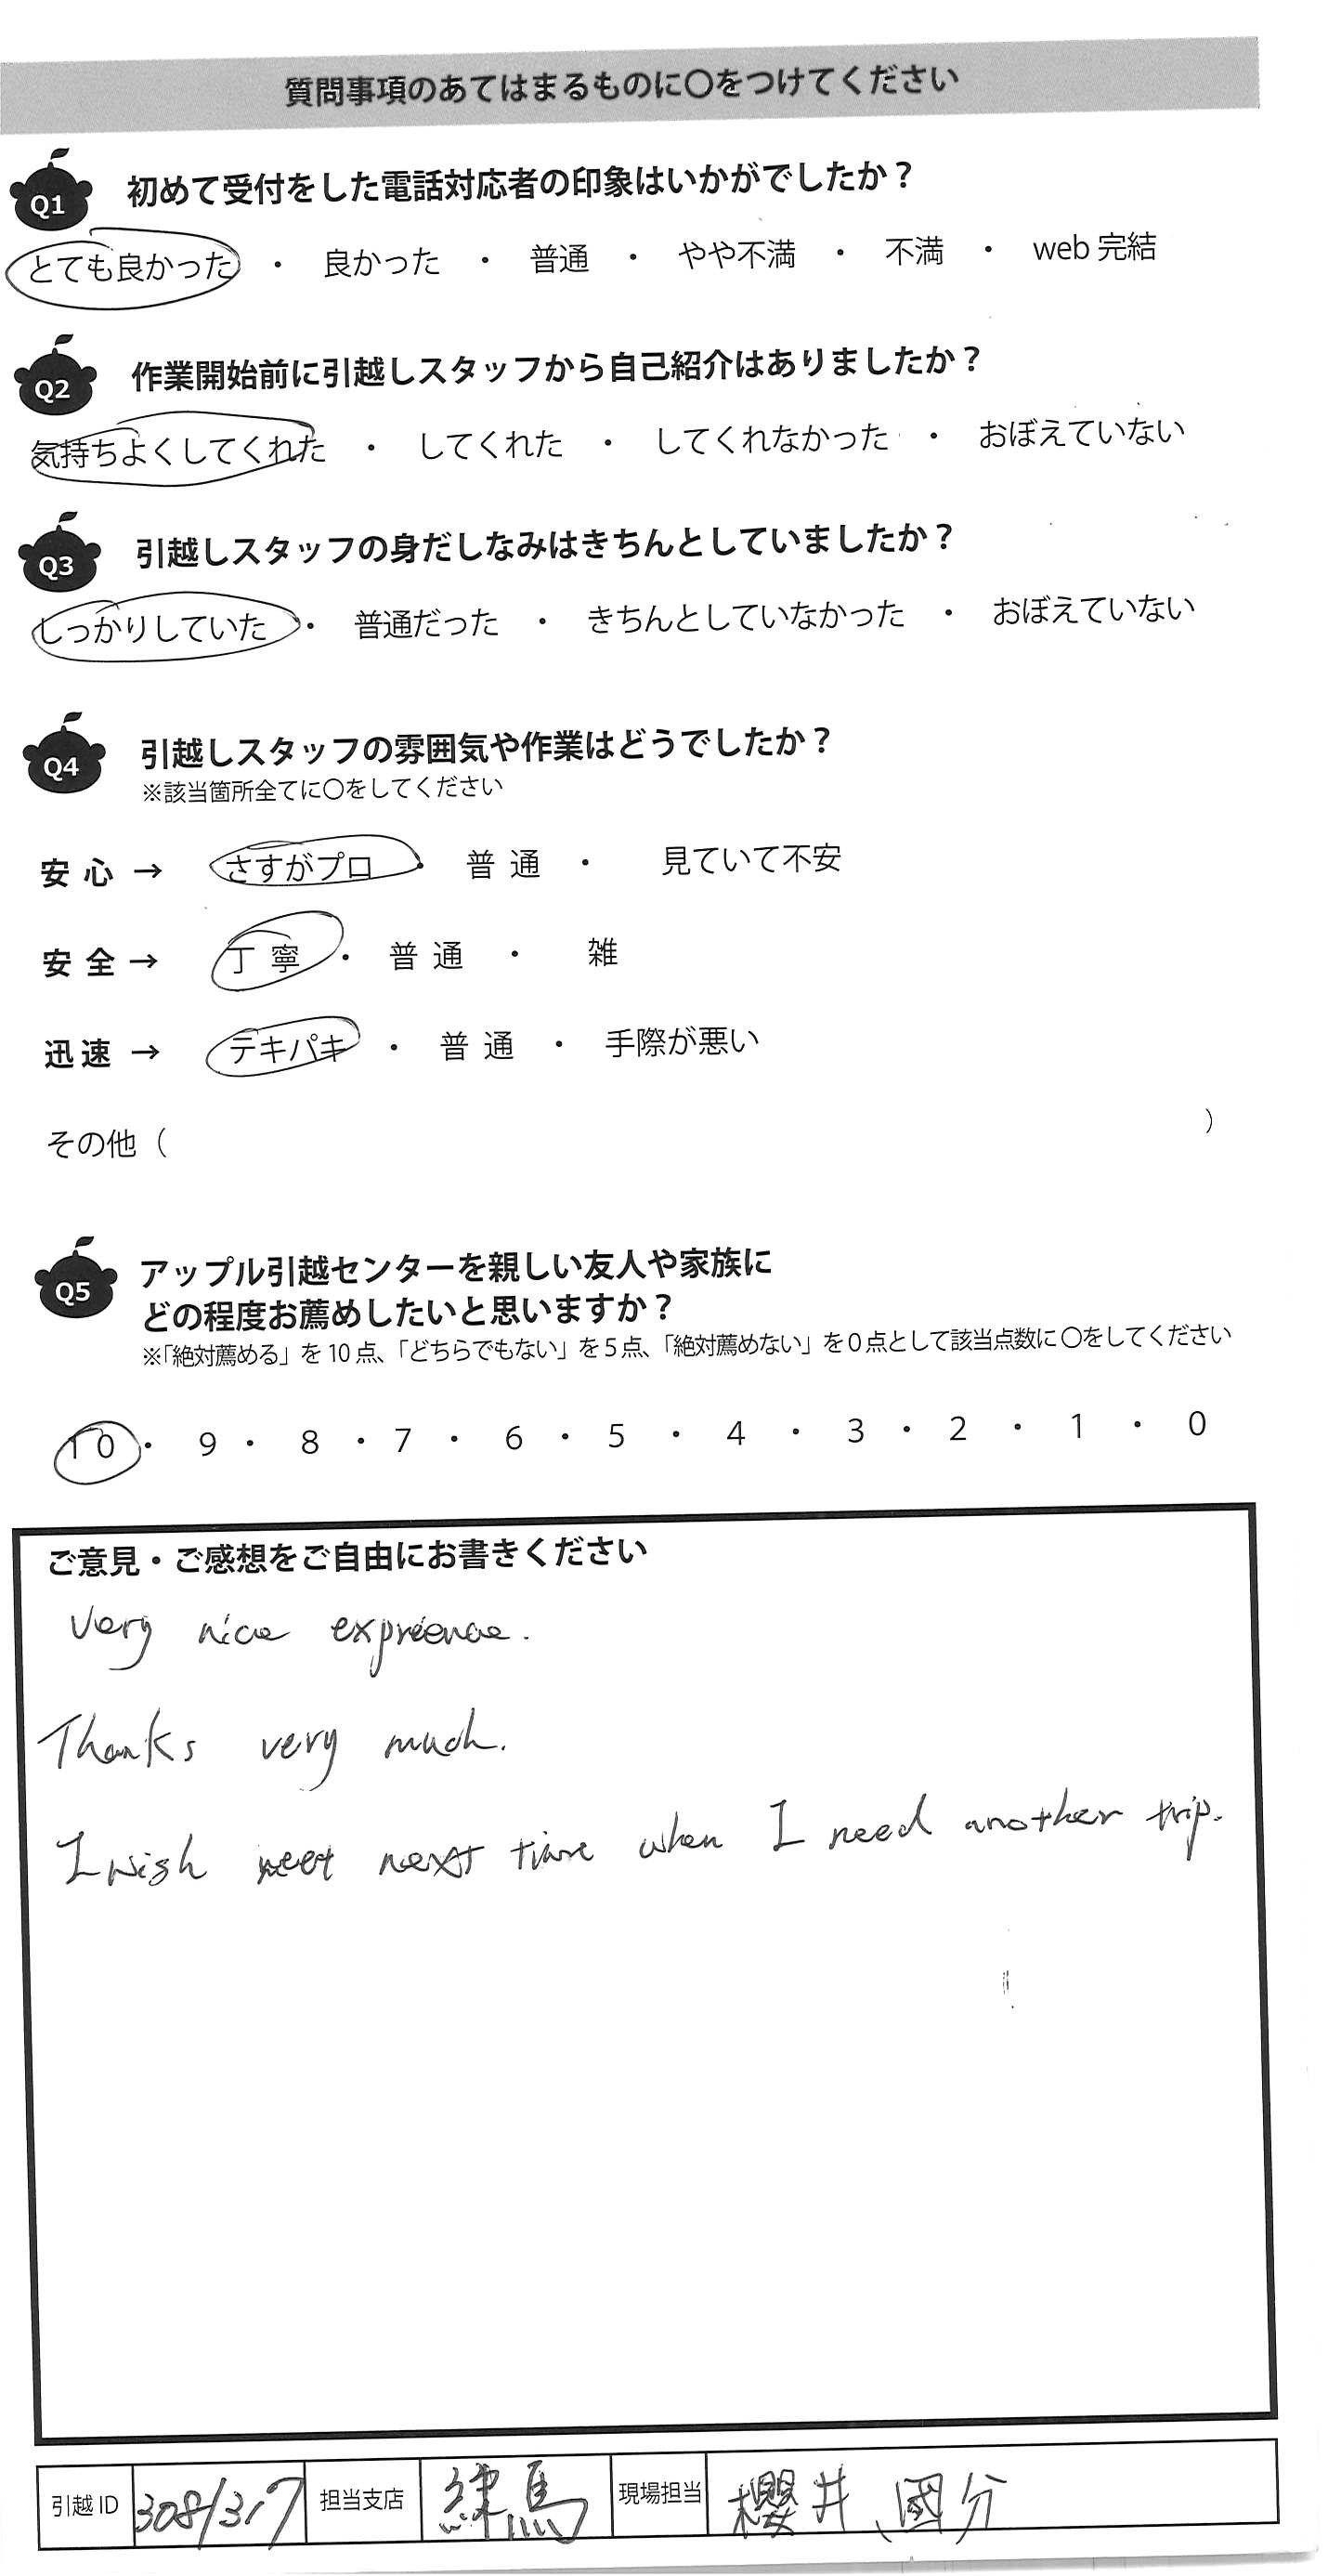 質問事項のあてはまるものに〇をつけてください
Q1 初めて受付をした電話対応者の印象はいかがでしたか？
とても良かった ・ 良かった ・ 普通 ・ やや不満 ・ 不満 ・ web 完結
Q2 作業開始前に引越しスタッフから自己紹介はありましたか？
気持ちよくしてくれた ・ してくれた ・ してくれなかった ・ おぼえていない
Q3 引越しスタッフの身だしなみはきちんとしていましたか？
しっかりしていた ・ 普通だった ・ きちんとしていなかった ・ おぼえていない
Q4 引越しスタッフの雰囲気や作業はどうでしたか？
※該当箇所全てに〇をしてください
安心 → さすがプロ ・ 普通 ・ 見ていて不安
安全 → 丁寧 ・ 普通 ・ 雑
迅速 → テキパキ ・ 普通 ・ 手際が悪い
その他（ ）
Q5 アップル引越センターを親しい友人や家族に
どの程度お薦めしたいと思いますか？
※「絶対薦める」を10点、「どちらでもない」を5点、「絶対薦めない」を0点として該当点数に〇をしてください
10 ・ 9 ・ 8 ・ 7 ・ 6 ・ 5 ・ 4 ・ 3 ・ 2 ・ 1 ・ 0
ご意見・ご感想をご自由にお書きください
Very nice expreience.
Thanks very much.
I wish meet next time when I need another trip.
引越ID 3081317 担当支店 練馬 現場担当 櫻井、國分